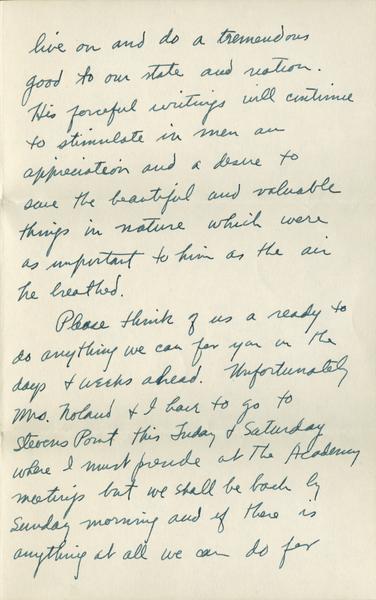 live on and do a tremendous
good to our state and nation.
His forceful writings will continue
to stimulate in men an
appreciation and a desire to
save the beautiful and valuable
things in nature which were
as important to him as the air
he breathed.
Please think of us a ready to
do anything we can for you in the
days & weeks ahead. Unfortunately
Mrs. Noland & I have to go to
Stevens Point this Friday & Saturday
where I must preside at the Academy
meetings but we shall be back by
Sunday morning and if there is
anything at all we can do for